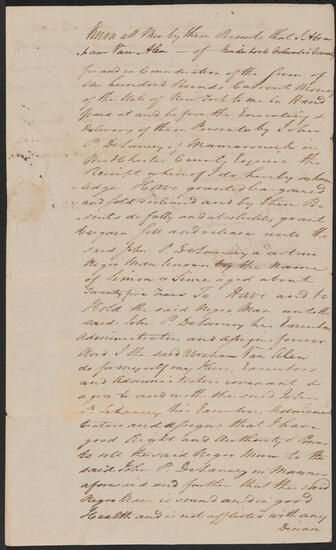 Know all Men by these Presents that I Abra
ham Van Alen — of Kinderhook Columbia County
for and in Consideration of the Sum of
one hundred Pounds Current Money
of the State of New York to me in Hand
Paid at and before the Ensealing &
Delivery of these Presents by John
P. DeLancey of Mamaroneck in
Westchester County Esquire the
Receipt whereof I do hereby acknow
ledge Have granted bargained
and Sold released and by these Pre
sents do fully and absolutely grant
bargain Sell and release unto the
said John P. DeLancey a certain
Negro Man known by the Name
of Simon or Sime aged about
Twenty five Years To Have and to
Hold the said Negro Man unto the
said John P. DeLancey his Executors
Administrators and assigns forever
And I the said Abraham Van Alen
do for myself my Heirs Executors
and Administrators covenant &
agree to and with the said John
P. Delancey his Executors Adminis
trators and assigns that I have
good Right and Authority & Power
to sell the said Negro Man to the
said John P. DeLancey in Manner
aforesaid and further that the said
Negro Man is sound and in good
Health and is not afflicted with any
Disease